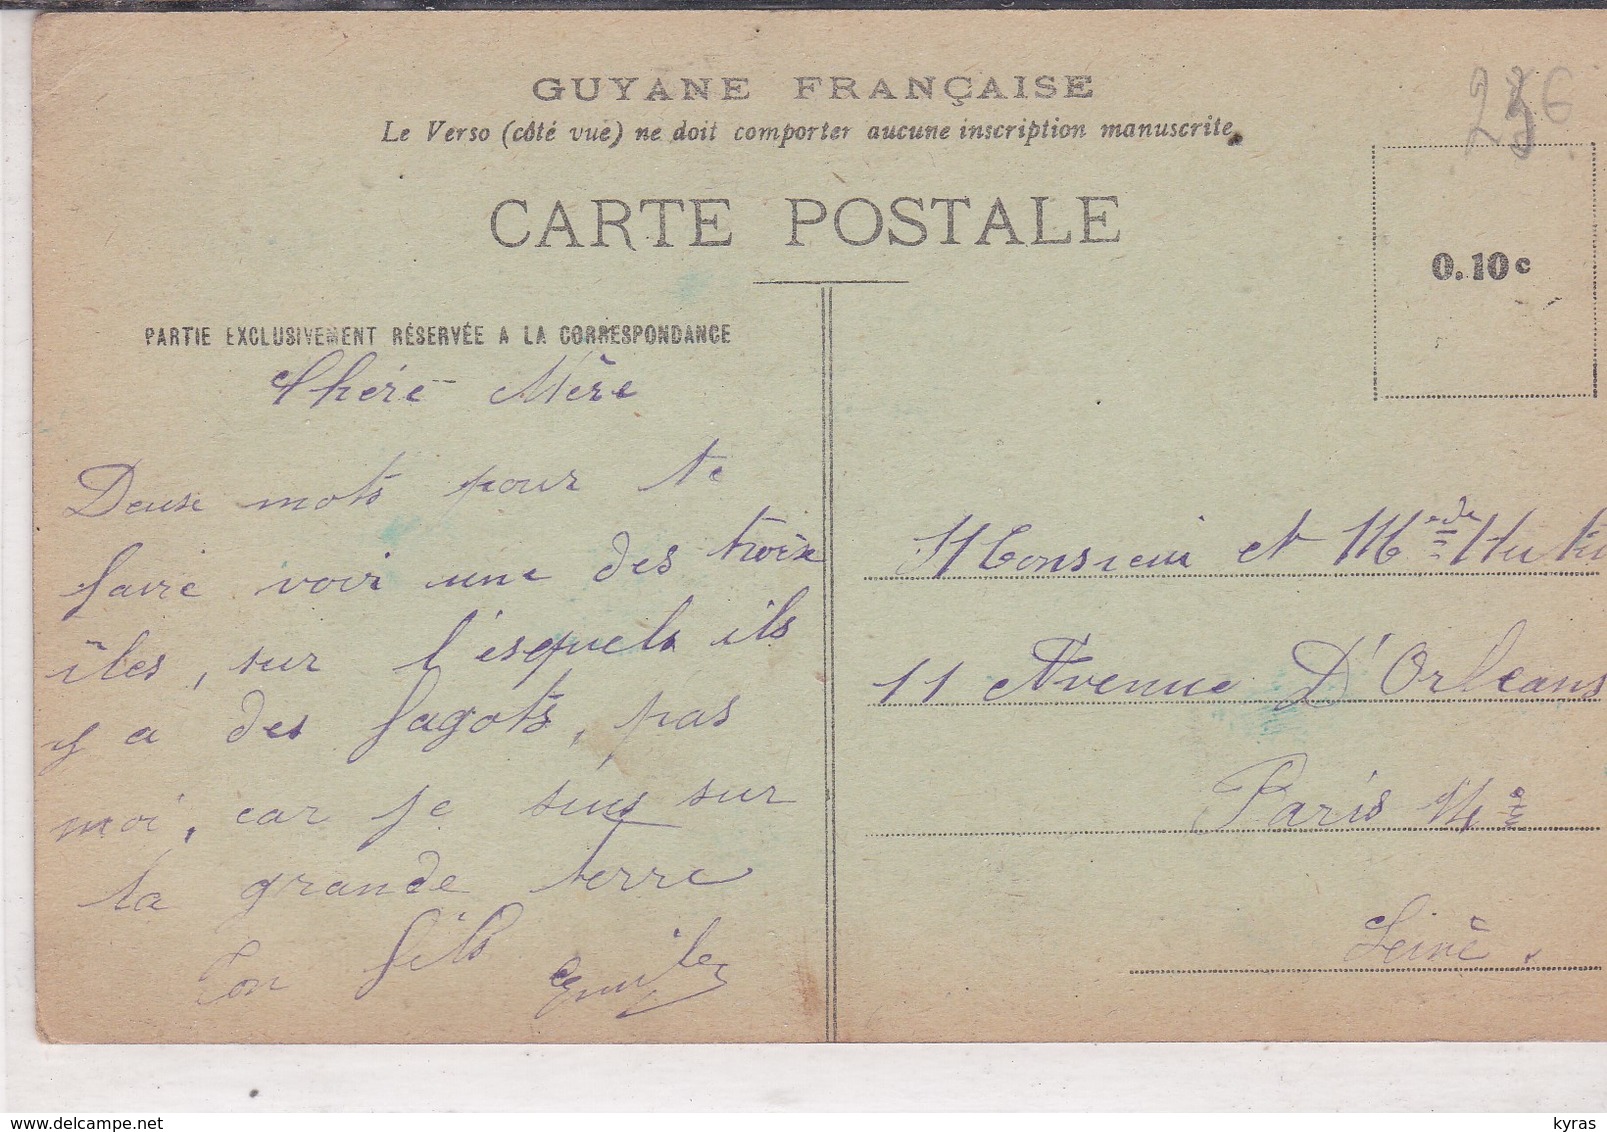 GUYANE FRANÇAISE
Le Verso (côté vue) ne doit comporter aucune inscription manuscrite.
CARTE POSTALE
0.10 c
PARTIE EXCLUSIVEMENT RÉSERVÉE A LA CORRESPONDANCE
Chère Mère
Deuse mots pour te
faire voir une des troix
îles, sur l'esquels ils
y a des fagots, pas
moi, car je suis sur
la grande terre
Ton fils Emile
Monsieur et Mde
11 Avenue D'Orleans
Paris 14e
Seine.
delcampe.net
kyras